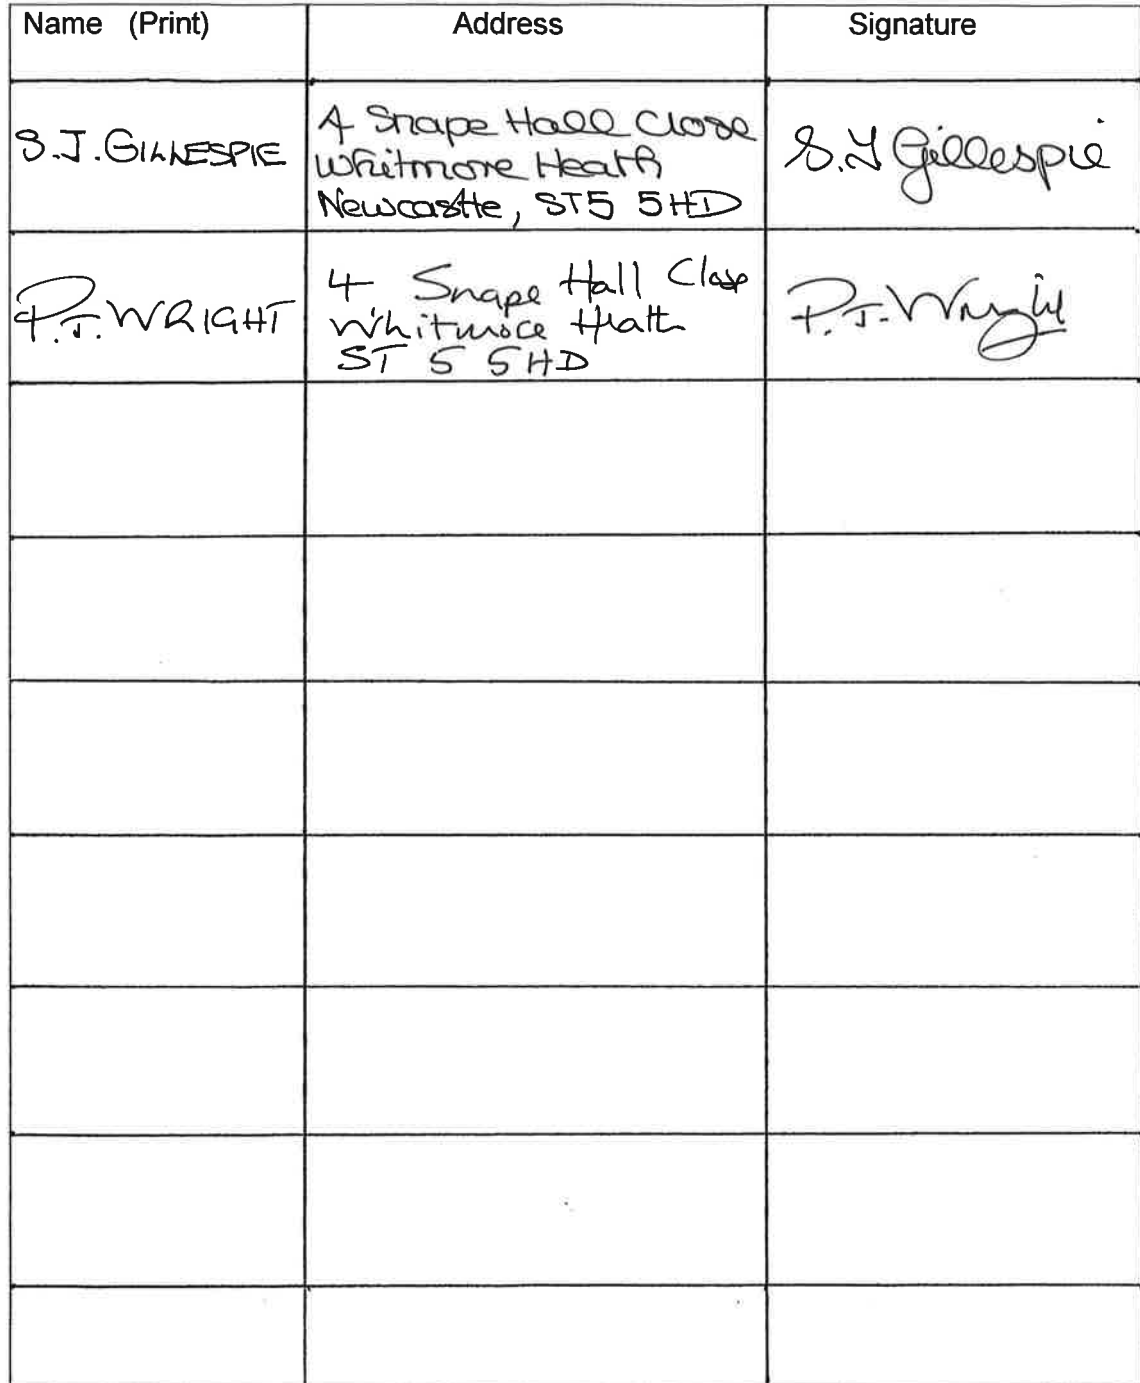 Name (Print) Address Signature
S.J. GILLESPIE
4 Snape Hall Close
Whitmore Heath
Newcastle, ST5 5HD
S.J Gillespie
P.J. WRIGHT
4 Snape Hall Close
Whitmore Heath
ST 5 5HD
P.J. Wright